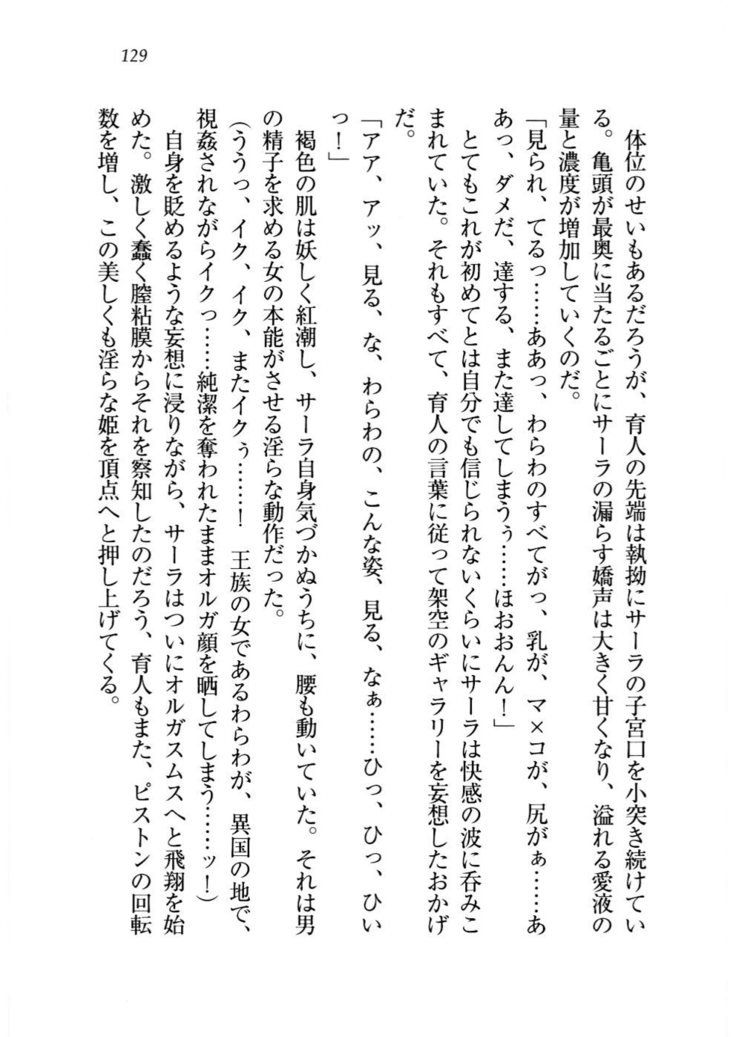 129
体位のせいもあるだろうが、育人の先端は執拗にサーラの子宮口を小突き続けてい
る。亀頭が最奥に当たるごとにサーラの漏らす嬌声は大きく甘くなり、溢れる愛液の
量と濃度が増加していくのだ。
「見られ、てるっ……ああっ、わらわのすべてがっ、乳が、マ×コが、尻がぁ……あ
あっ、ダメだ、達する、また達してしまうぅ……ほおおんん！」
とてもこれが初めてとは自分でも信じられないくらいにサーラは快感の波に呑みこ
まれていた。それもすべて、育人の言葉に従って架空のギャラリーを妄想したおかげ
だ。
「アア、アッ、見る、な、わらわの、こんな姿、見る、なぁ……ひっ、ひっ、ひい
っ！」
褐色の肌は妖しく紅潮し、サーラ自身気づかぬうちに、腰も動いていた。それは男
の精子を求める女の本能がさせる淫らな動作だった。
（ううっ、イク、イク、またイクぅ……！　王族の女であるわらわが、異国の地で、
視姦されながらイクっ……純潔を奪われたままオルガ顔を晒してしまう……ッ！）
自身を貶めるような妄想に浸りながら、サーラはついにオルガスムスへと飛翔を始
めた。激しく蠢く膣粘膜からそれを察知したのだろう、育人もまた、ピストンの回転
数を増し、この美しくも淫らな姫を頂点へと押し上げてくる。